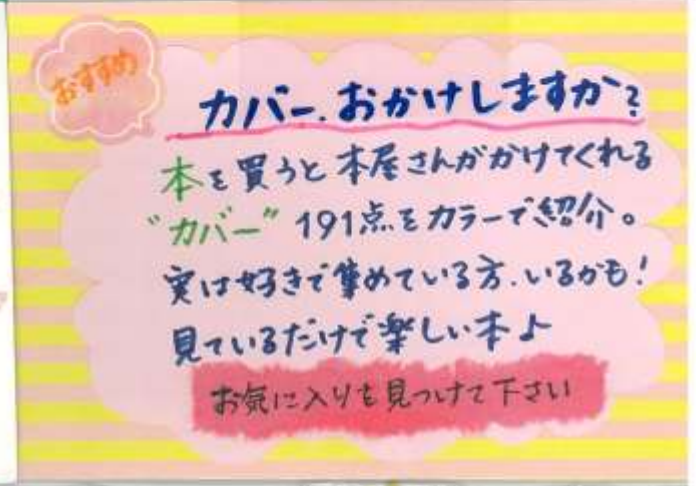 おすすめ
カバー、おかけしますか？
本を買うと本屋さんがかけてくれる
"カバー" 191点をカラーで紹介。
実は好きで集めている方、いるかも！
見ているだけで楽しい本♪
お気に入りを見つけて下さい